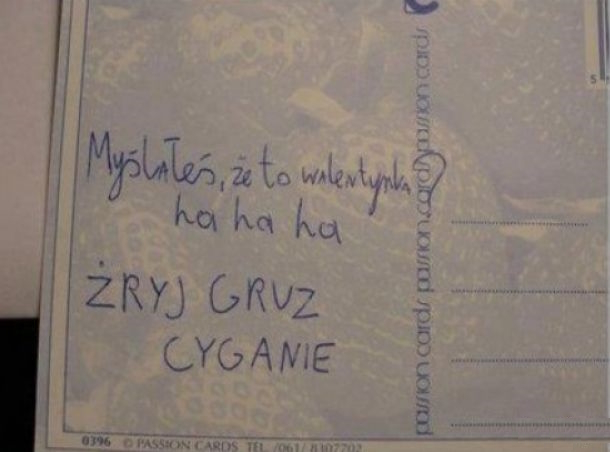 Myślałeś, że to walentynka?
ha ha ha
ŻRYJ GRUZ
CYGANIE
passion cards passion cards passion cards passion cards
0396 © PASSION CARDS TEL. /061/ 8307702